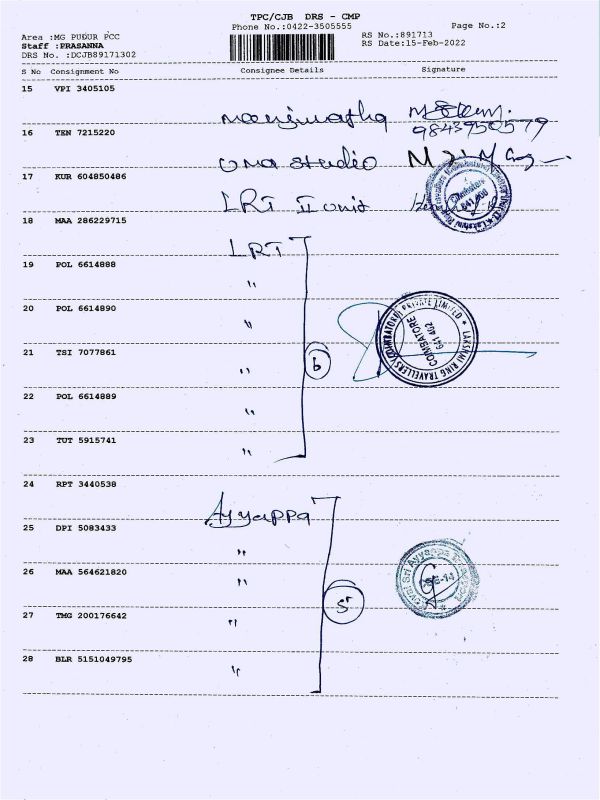 TPC/CJB DRS - CMP
Phone No.:0422-3505555
Page No.:2
Area :MG PUDUR PCC
RS No.:891713
Staff :PRASANNA
RS Date:15-Feb-2022
DRS No. :DCJB89171302
S No Consignment No Consignee Details Signature
15 VPI 3405105
Manjunatha
9843950579
16 TEN 7215220
uma studio
17 KUR 604850486
LRT II unit
18 MAA 286229715
LRT
19 POL 6614888
"
20 POL 6614890
"
21 TSI 7077861
"
6
22 POL 6614889
"
23 TUT 5915741
"
LAKSHMI RING TRAVELLERS (COIMBATORE) PRIVATE LIMITED
COIMBATORE
641 402
24 RPT 3440538
Ayyappa
25 DPI 5083433
"
26 MAA 564621820
"
27 TMG 200176642
"
5
28 BLR 5151049795
"